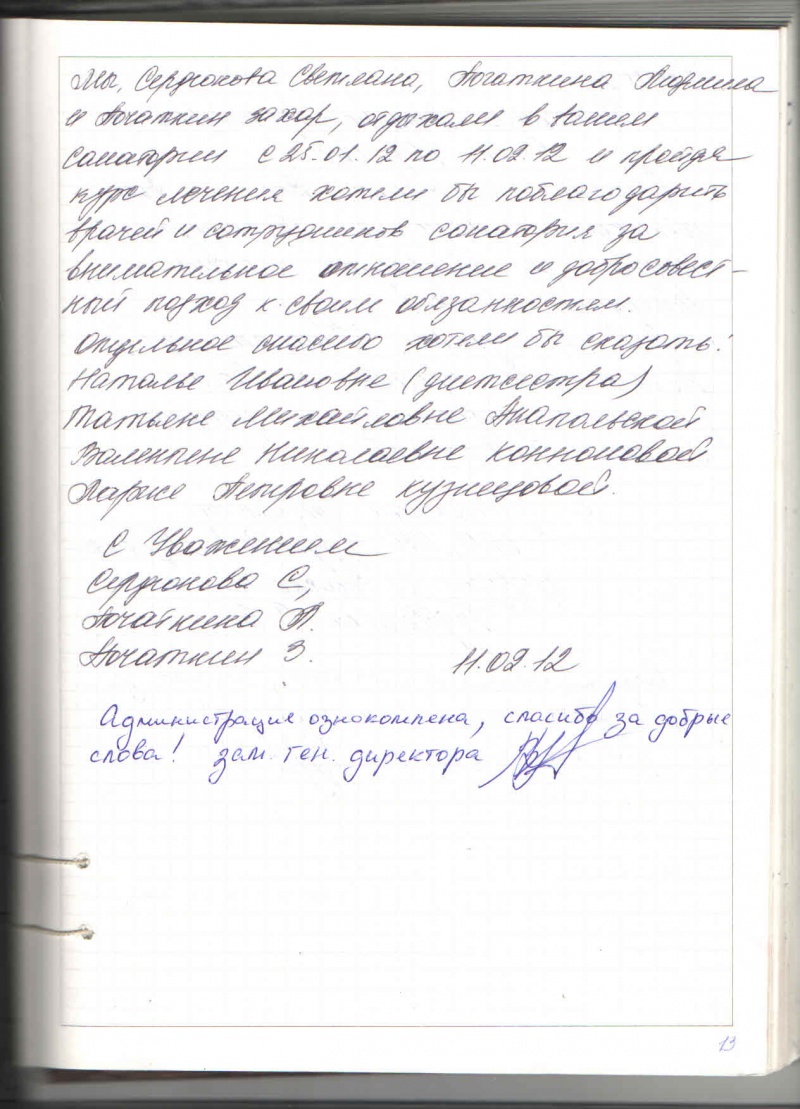 Мы, Сердюкова Светлана, Початкина Людмила
и Початкин Захар, отдыхали в вашем
санатории с 25.01.12 по 11.02.12 и пройдя
курс лечения хотели бы поблагодарить
врачей и сотрудников санатория за
внимательное отношение и добросовест-
ный подход к своим обязанностям.
Отдельное спасибо хотели бы сказать:
Наталье Ивановне (диетсестра)
Татьяне Михайловне
Валентине Николаевне
Ларисе Петровне Кузнецовой.
С Уважением
Сердюкова С,
Початкина Л.
Початкин З.
11.02.12
Администрация ознокомлена, спасибо за добрые
слова! зам. ген. директора
13